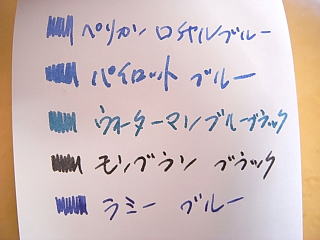 ペリカン ロイヤルブルー
パイロット ブルー
ウォーターマン ブルーブラック
モンブラン ブラック
ラミー ブルー